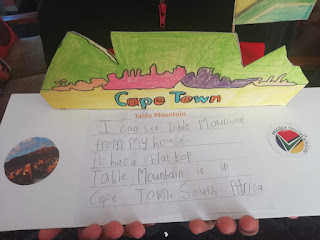 Cape Town
Table Mountain
I can see Table Mountain
from my house.
It has a flat top
Table Mountain is in
Cape Town, South Africa